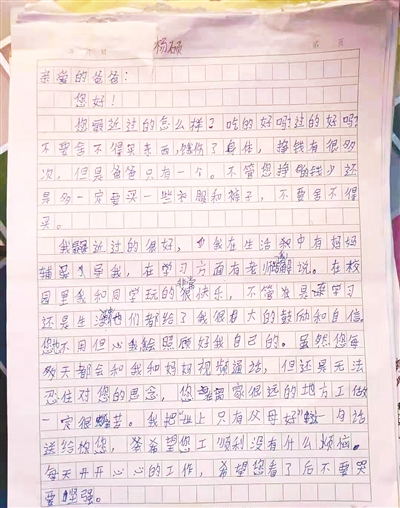 杨硕
亲爱的爸爸：
您好！
您最近过的怎么样？吃的好吗？过的好吗？
不要舍不得买东西，饿伤了身体，挣钱有很多
次，但是爸爸只有一个。不管您挣钱少还
是多一定要买一些衣服和裤子，不要舍不得
买。
我最近过的很好，我在生活中有妈妈
辅导我，在学习方面有老师解说。在校
园里我和同学玩的很快乐，不管是学习
还是生活他们都给了我很大的鼓励和自信
您不用担心我会照顾好我自己的。虽然您每
天都会和我和妈妈视频通话，但还是无法
忍住对您的思念，您离家很远的地方工作
一定很辛苦。我把"世上只有父母好"这句话
送给你您，希望您工顺利没有什么烦恼。
每天开开心心的工作，希望您看了后不要哭
要坚强。